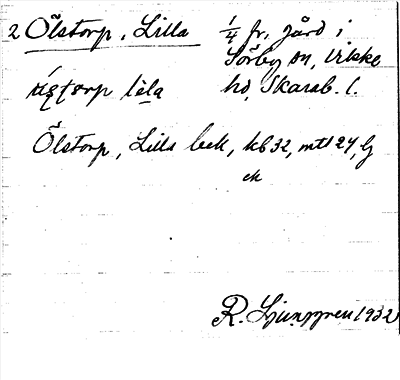 2 Ölstorp, Lilla 1/4 fr. gård i
Sörby sn, Vilske
hd, Skarab. l.
Ölstorp, Lilla bek, kb 32, mtl 27, lj
ek
R. Ljunggren 1932